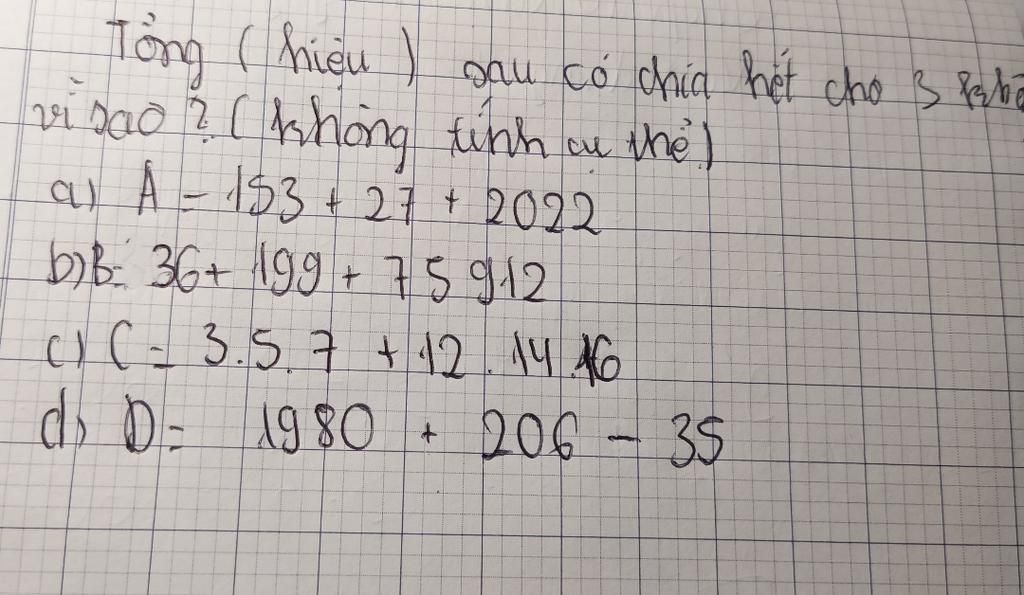 Tổng (hiệu) sau có chia hết cho 3 khô
vì sao? (không tính cụ thể)
a) A = 153 + 27 + 2022
b) B = 36 + 199 + 75 912
c) C = 3.5.7 + 12.14.16
d) D = 1980 + 206 - 35